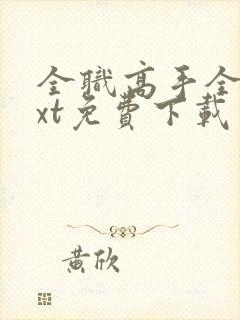 全職高手全
xt免費下載
黃欣